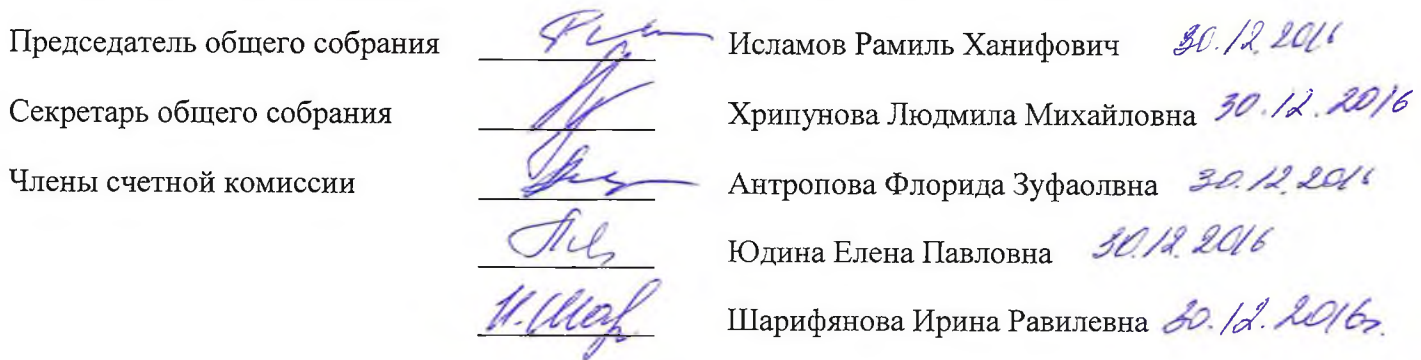 Председатель общего собрания Исламов Рамиль Ханифович 30.12.2016
Секретарь общего собрания Хрипунова Людмила Михайловна 30.12.2016
Члены счетной комиссии Антропова Флорида Зуфаолвна 30.12.2016
Юдина Елена Павловна 30.12.2016
Шарифянова Ирина Равилевна 30.12.2016г.